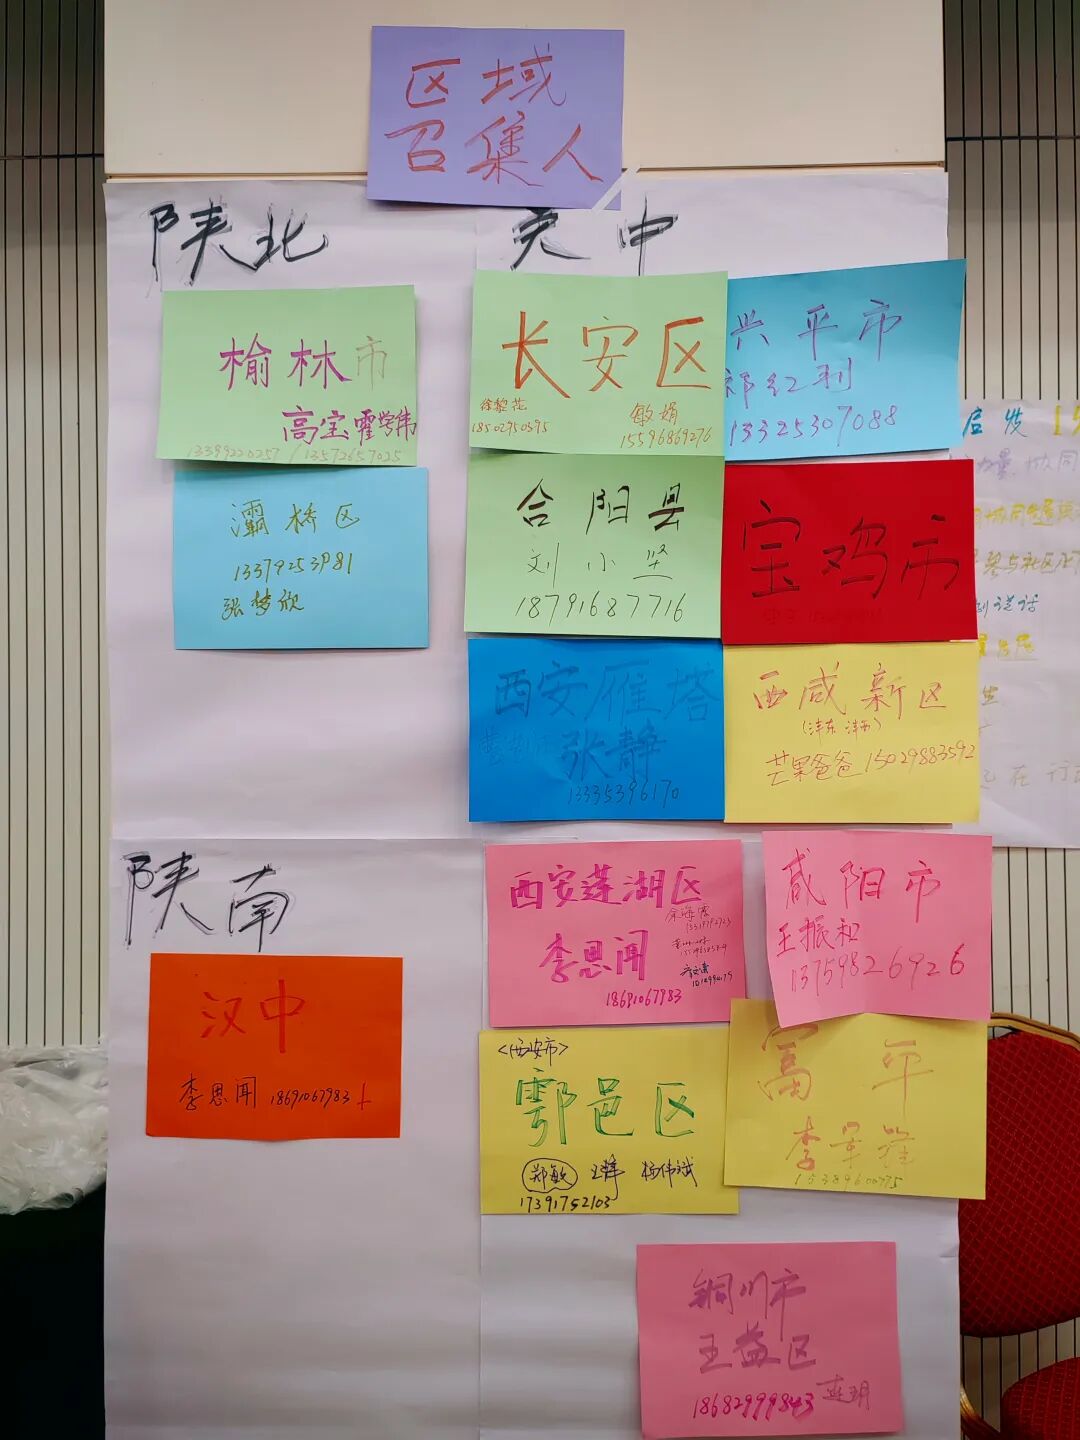 区域
召集人
陕北
关中
榆林市
高宝霍学伟
13399220257 / 13572657025
灞桥区
13379253981
张梦欣
长安区
徐黎花
18502950595
敏娟
15596869276
兴平市
祁红利
13325307088
合阳县
刘小坚
18791687716
宝鸡市
西安雁塔
张静
13335396170
西咸新区
(沣东 沣西)
芒果爸爸 15029883592
陕南
汉中
李思闻 18691067983
西安莲湖区
李思闻
18691067983
咸阳市
王振和
13759826926
<西安市>
鄠邑区
郑敏 王锋 杨伟斌
17391752103
富平
铜川市
王益区
18682999843
启发
力量 协同